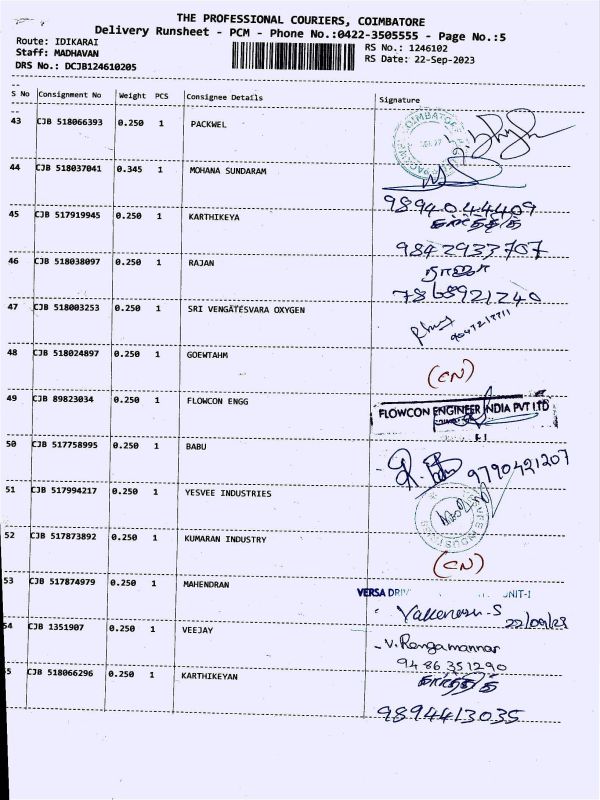 THE PROFESSIONAL COURIERS, COIMBATORE
Delivery Runsheet - PCM - Phone No.:0422-3505555 - Page No.:5
Route: IDIKARAI
RS No.: 1246102
Staff: MADHAVAN
RS Date: 22-Sep-2023
DRS No.: DCJB124610205
S No Consignment No Weight PCS Consignee Details Signature
43 CJB 518066393 0.250 1 PACKWEL
44 CJB 518037041 0.345 1 MOHANA SUNDARAM
9894044409
45 CJB 517919945 0.250 1 KARTHIKEYA
9842933707
46 CJB 518038097 0.250 1 RAJAN
ராஜா
7868921240
47 CJB 518003253 0.250 1 SRI VENGATESVARA OXYGEN
48 CJB 518024897 0.250 1 GOEWTAHM
(CN)
49 CJB 89823034 0.250 1 FLOWCON ENGG
FLOWCON ENGINEER INDIA PVT LTD
50 CJB 517758995 0.250 1 BABU
9790421207
51 CJB 517994217 0.250 1 YESVEE INDUSTRIES
52 CJB 517873892 0.250 1 KUMARAN INDUSTRY
(CN)
53 CJB 517874979 0.250 1 MAHENDRAN
VERSA DRIV UNIT-I
22/09/23
54 CJB 1351907 0.250 1 VEEJAY
- V. Rengamannar
9486351290
55 CJB 518066296 0.250 1 KARTHIKEYAN
9894413035